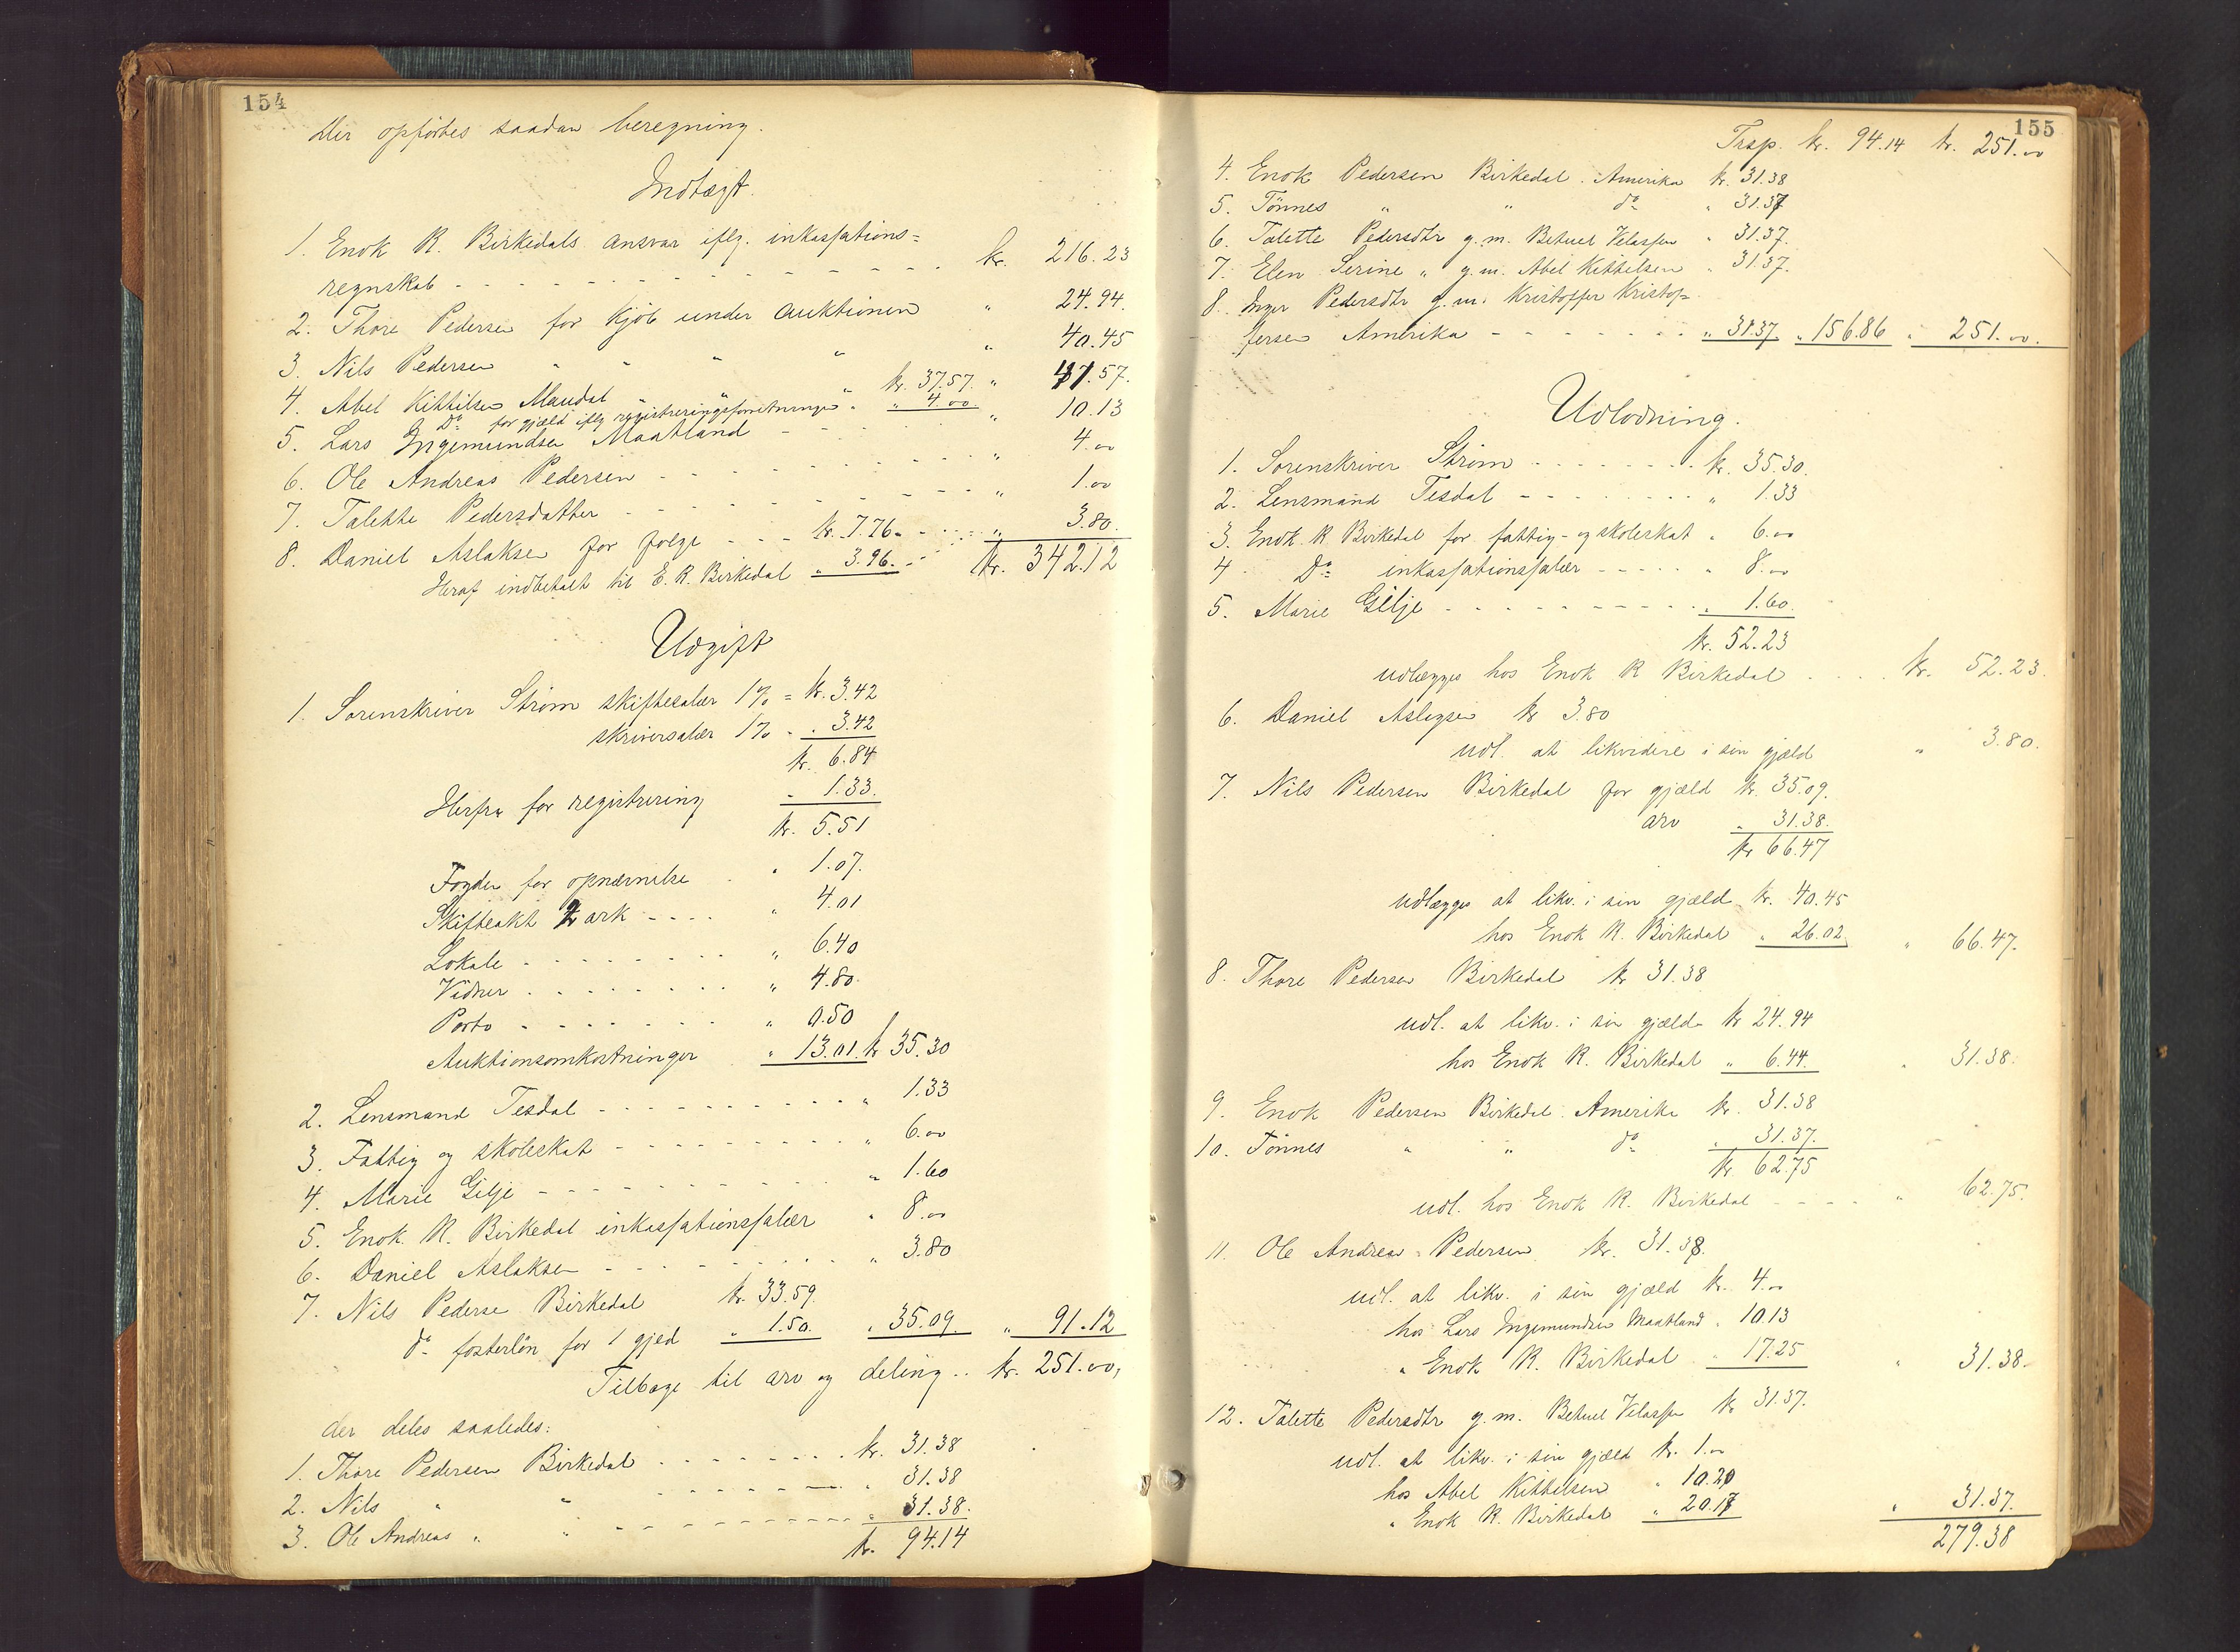 154
Her opførtes saadan beregning.
Indtægt.
1. Enok R. Birkedals ansvar iflg. inkassations=
regnskab - - - - - - - - - - kr. 216.23
2. Thore Pedersen for kjøb under auktionen " 24.94.
3. Nils Pedersen " " " " 40.45
4. Abel Kittilsen Maudal " " " kr. 37.57. " 41.57.
Do for gjæld iflg registreringsforretningen " " 4.00
5. Lars Ingemundsen Maatland - - - " 10.13
6. Ole Andreas Pedersen - - - - - - " 4.00
7. Talette Pedersdatter - - - - - - " 1.00
8. Daniel Aslaksen for følge - - - kr. 7.76. - - - " 3.80.
Heraf indbetalt til E. R. Birkedal " 3.96. - kr. 342.12
Udgift
1. Sorenskriver Strøm skiftesalær 1% = kr. 3.42
skriversalær 1% - " 3.42
kr. 6.84
Herfra for registrering - 1.33.
kr. 5.51
Fogden for opnævnelse . " 1.07.
Skifteakt 2 ark - - - - " 4.01
Lokale - - - - - - - - - " 6.40
Vidner - - - - - - - - - " 4.80.
Porto - - - - - - - - " 0.50
Auktionsomkostninger " 13.01. kr 35.30
2. Lensmand Tesdal - - - - - - - - - - " 1.33
3. Fattig og skoleskat - - - - - - - - - - " 6.00
4. Marie Gilje - - - - - - - - - - - " 1.60
5. Enok R. Birkedal inkassationssalær " 8.00
6. Daniel Aslaksen - - - - - - - - - " 3.80
7. Nils Pederse Birkedal kr. 33.59.
do fosterløn for 1 gjed " 1.50. " 35.09. " 91.12
Tilbage til arv og deling.. kr. 251.00,
der deles saaledes:
1. Thore Pedersen Birkedal - - - - - - - kr. 31.38
2. Nils " " - - - - - - - " 31.38
3. Ole Andreas " " - - - - - - - " 31.38.
kr. 94.14
155
Trsp. kr. 94.14 kr. 251.00
4. Enok Pedersen Birkedal. Amerika kr. 31.38
5. Tönnes " " do " 31.37
6. Talette Pedersdtr g.m. Betuel Velassen " 31.37.
7. Elen Serine " g.m. Abel Kittilsen " 31.37.
8. Inger Pedersdtr g.m. Kristoffer Kristof=
fersen Amerika - - - - - - - - " 31.37 " 156.86 " 251.00.
Udlodning.
1. Sorenskriver Strøm - - - - - - - kr. 35.30.
2. Lensmand Tesdal - - - - - - - - " 1.33
3. Enok R Birkedal for fattig- og skoleskat " 6.00
4 Do inkassationssalær - - - - - " 8.00
5. Marie Gilje - - - - - - - - - - " 1.60.
kr. 52.23
udlægges hos Enok R Birkedal . . . . kr. 52.23.
6. Daniel Aslagsen kr 3.80
udl. at likvidere i sin gjæld " 3.80.
7. Nils Pedersen Birkedal for gjæld kr. 35.09.
arv " 31.38.
kr 66.47
udlægges at likv. i sin gjæld kr. 40.45
hos Enok R. Birkedal " 26.02. " 66.47.
8. Thore Pedersen Birkedal kr 31.38
udl. at likv. i sin gjæld kr 24.94
hos Enok R. Birkedal " 6.44. " 31.38.
9. Enok Pedersen Birkedal. Amerika kr. 31.38
10. Tönnes " " do " 31.37.
kr. 62.75
udl. hos Enok R. Birkedal - - - - " 62.75.
11. Ole Andreas Pedersen kr. 31.38.
udl. at likv. i sin gjæld kr. 4.00
hos Lars Ingemundsen Maatland " 10.13
" Enok R. Birkedal " 17.25 " 31.38.
12. Talette Pedersdtr g.m. Betuel Velassen kr 31.37.
udl. at likv. i sin gjæld kr. 1.00
hos Abel Kittilsen " 10.20
" Enok R. Birkedal " 20.17 " 31.37.
279.38